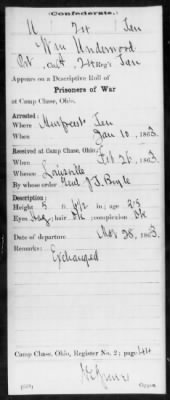 (Confederate.)
U 24 Ten
Wm Underwood
Pvt, Co. , 24 Reg't Ten
Appears on a Descriptive Roll of
Prisoners of War
at Camp Chase, Ohio.
Arrested:
Where Murfreesb Ten
When Jan 10, 1863.
Received at Camp Chase, Ohio,
When Feb 26, 1863.
Whence Louisville
By whose order Genl J. T. Boyle
Description:
Height 5 ft. 6½ in; age 25
Eyes ; hair Dk; complexion Dk
Date of departure Mar 28, 1863.
Remarks:
Exchanged
Camp Chase, Ohio, Register No. 2; page 414
Copyist.